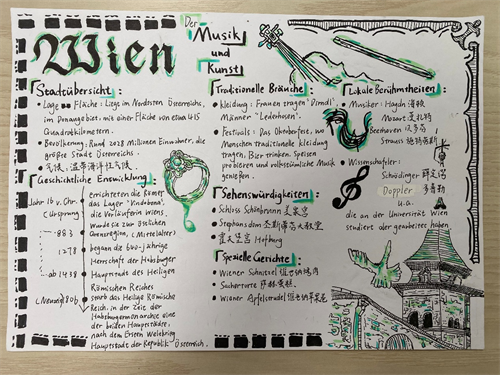 Wien
Der
Musik
und
Kunst
Stadtübersicht :
• Lage und Fläche : Liegt im Nordosten Österreichs,
im Donaugebiet, mit einer Fläche von etwa 415
Quadratkilometern.
• Bevölkerung : Rund 2028 Millionen Einwohner, die
größte Stadt Österreichs.
• 气候 : 温带海洋性气候.
Geschichtliche Entwicklung :
Jahr 1b v. Chr.
(Ursprung)
errichteten die Römer
das Lager "Vindobona",
die Vorläuferin Wiens,
wurde sie zur östlichen
Grenzregion, (Mittelalter)
883
1278
begann die 600-jährige
Herrschaft der Habsburger
ab 1438
Hauptstadt des Heiligen
Römischen Reiches
(Neuzeit) 1806
starb das Heilige Römische
Reich, in der Zeit der
Habsburgermonarchie eine
der beiden Hauptstädte,
nach dem Ersten Weltkrieg
Hauptstadt der Republik Österreich.
Traditionelle Bräuche :
• Kleidung : Frauen tragen "Dirndl"
Männer "Lederhosen".
• Festivals : Das Oktoberfest, wo
Menschen traditionelle Kleidung
tragen, Bier trinken, Speisen
probieren und volkstümliche Musik
genießen.
Sehenswürdigkeiten :
• Schloss Schönbrunn 美泉宫
• Stephansdom 圣斯蒂芬大教堂
• 霍夫堡宫 Hofburg
Spezielle Gerichte :
• Wiener Schnitzel 维也纳炸肉
• Sachertorte 萨赫蛋糕
• Wiener Apfelstrudel 维也纳苹果卷
Lokale Berühmtheiten :
• Musiker : Haydn 海顿
Mozart 莫扎特
Beethoven 贝多芬
Strauss 施特劳斯
• Wissenschaftler :
Schrödinger 薛定谔
Doppler 多普勒
u.a.
die an der Universität Wien
studiert oder gearbeitet haben